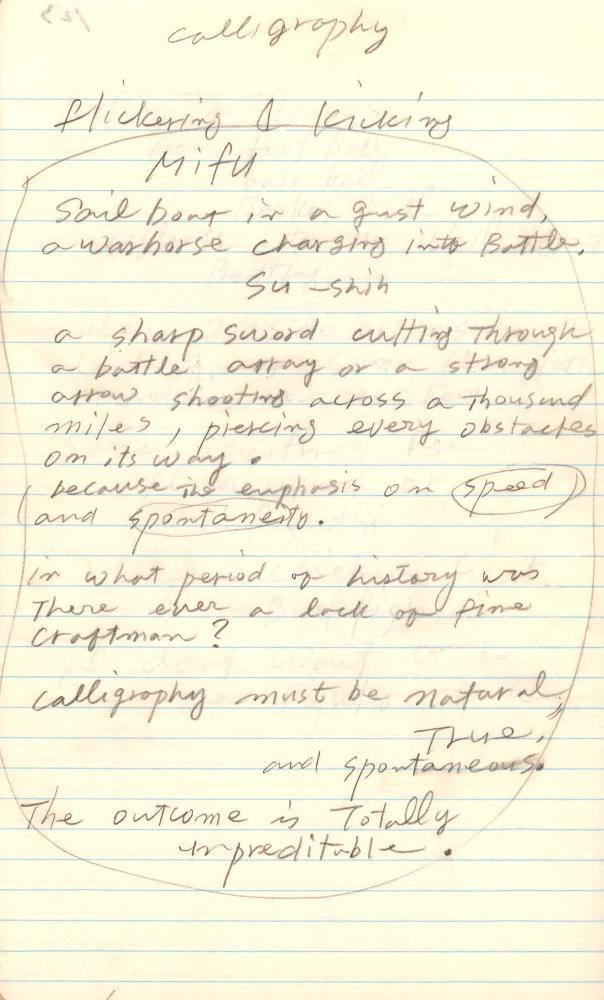 calligraphy
flickering & kicking
Mifu
Sail boat in a gust wind,
a warhorse charging into Battle.
Su-shih
a sharp sword cutting through
a battle array or a strong
arrow shooting across a thousand
miles, piercing every obstacles
on its way.
because the emphasis on speed
and spontanesty.
in what period of history was
There ever a lack of fine
craftman?
calligraphy must be natural,
True,
and spontaneous.
The outcome is Totally
unpreditable.